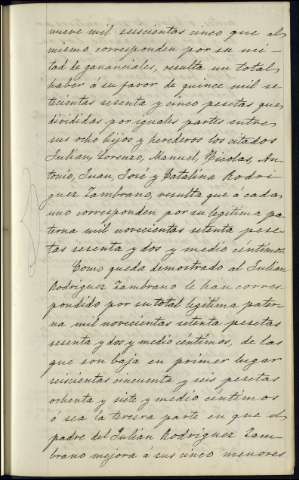 nueve mil seiscientos unco que al
mismo corresponden por su mi-
tad de gananciales, resulta un total
haber á su favor de quince mil se-
tecientas sesenta y cinco pesetas que
divididas por iguales partes entre
sus ocho hijos y herederos los citados
Julian, Lorenzo, Manuel, Nicolas, An-
tonio, Juan, José y Catalina Rodri-
guez Zambrano, resulta que á cada
uno corresponden por su legitima pa-
terna mil novecientas setenta pese-
tas sesenta y dos y medio céntimos.
Como queda demostrado al Julian
Rodriguez Zambrano le han corres-
pondido por su total legitima pater-
na mil novecientas setenta pesetas
sesenta y dos y medio céntimos, de las
que son baja en primer lugar
seiscientas cincuenta y seis pesetas
ochenta y siete y medio céntimos
ó sea la tercera parte en que el
padre del Julian Rodriguez Zam-
brano mejora á sus cinco menores